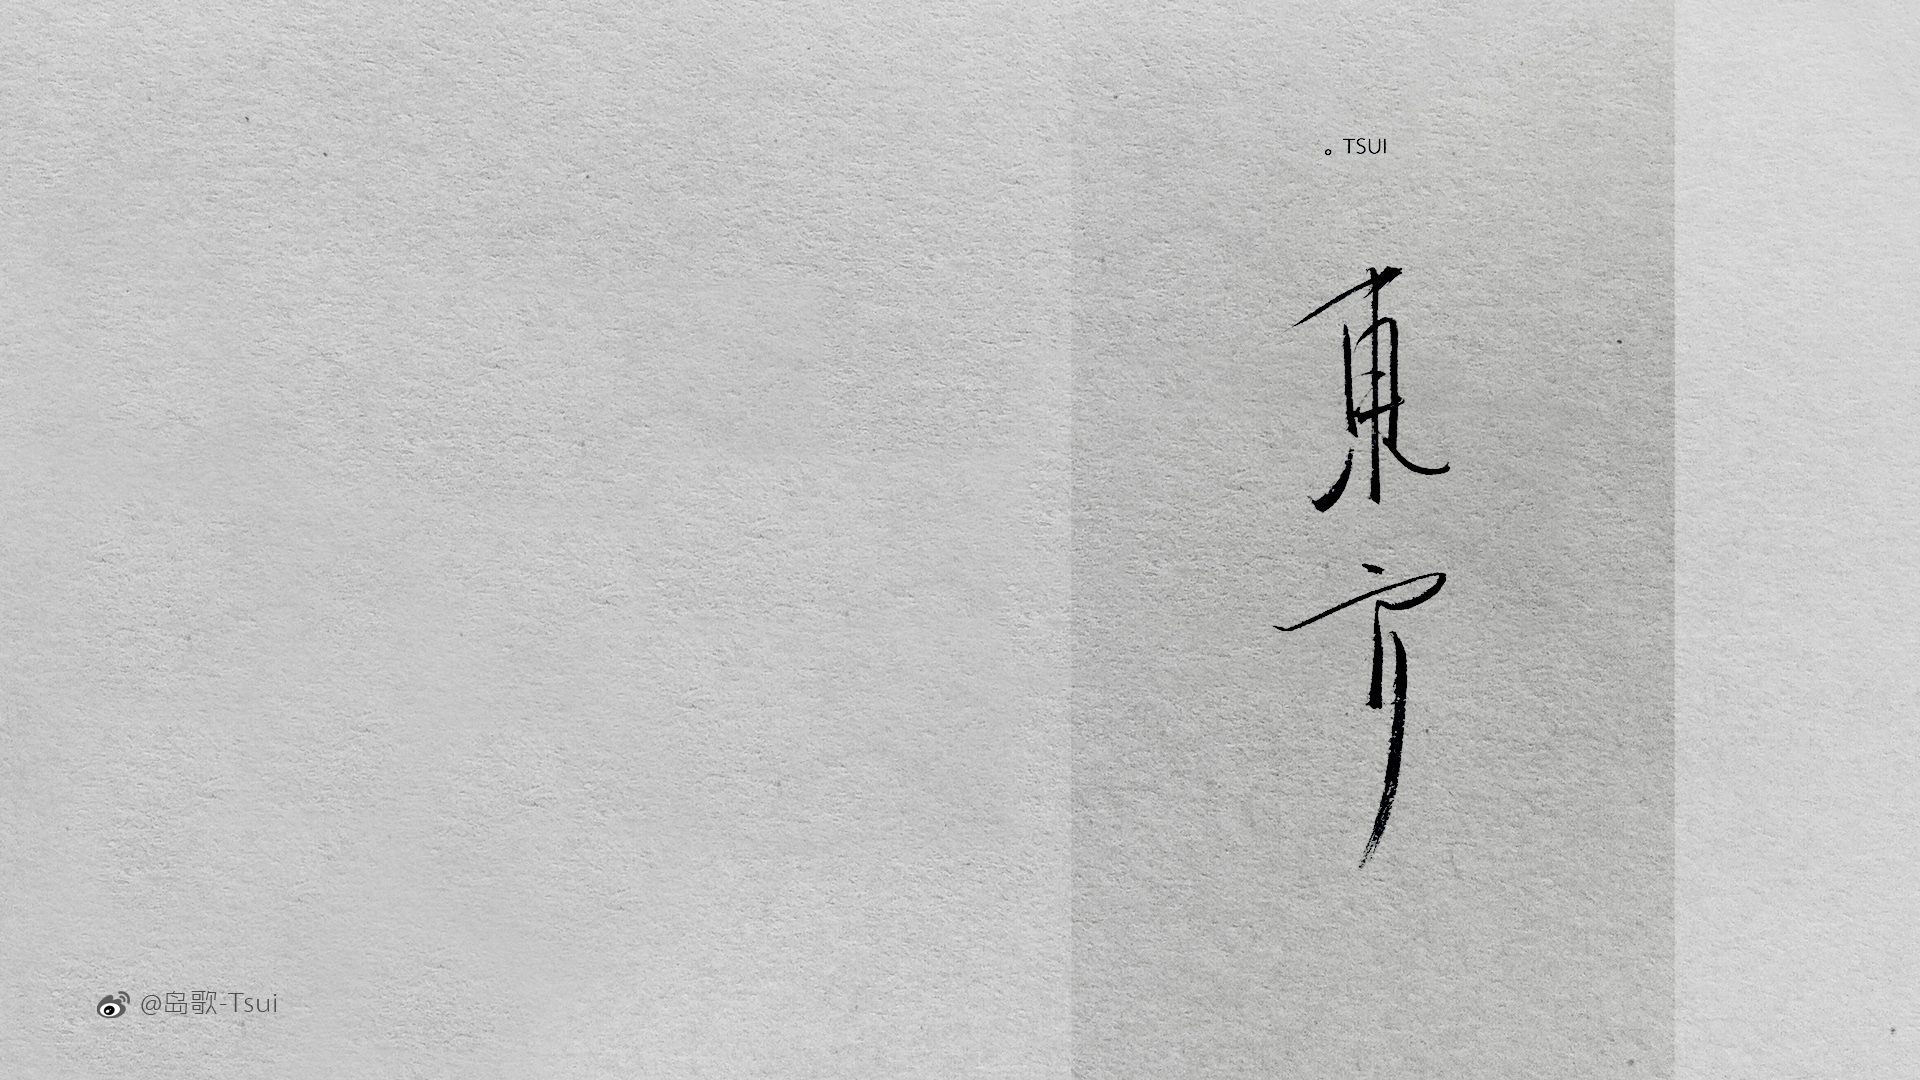 。TSUI
東方
@岛歌-Tsui